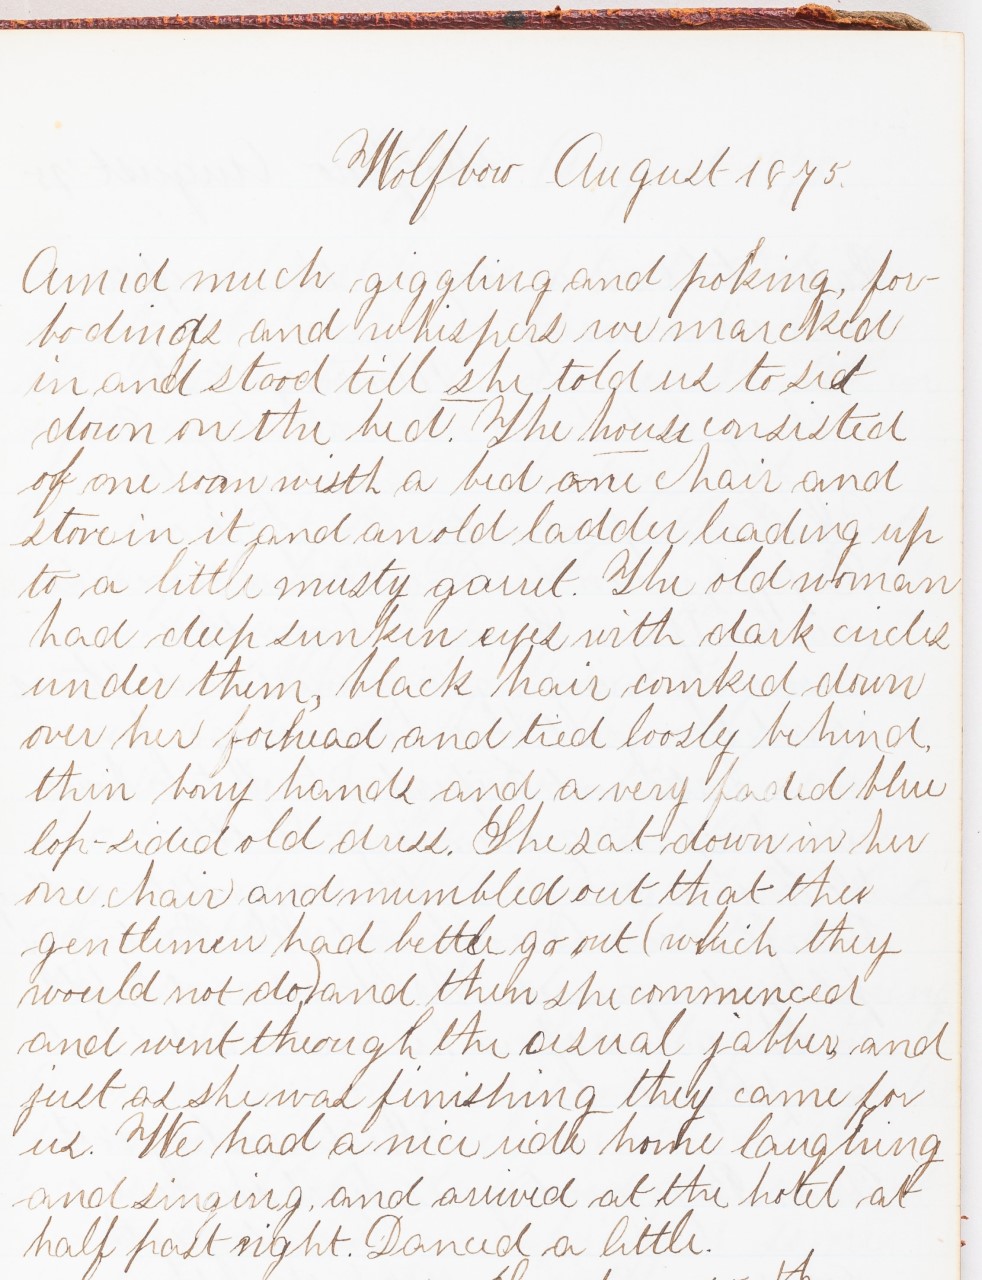 Wolfbow August 1875.
Amid much giggling and poking, for-
bodings and whispers we marcked
in and stood till she told us to sid
down on the bed. The house consisted
of one room wisth a bed one chair and
stove in it and an old ladder leading up
to a little musty garret. The old woman
had deep sunken eyes with dark circles
under them, black hair comked down
over her forhead and tied loosly behind,
thin bony hands and a very faded blue
lop-sided old dress. She sat down in her
one chair and mumbled out that the
gentlemen had bettle go out (which they
would not do) and then she commenced
and went theough the usual jabber, and
just as she was finishing they came for
us. We had a nice ride home laughing
and singing, and arrived at the hotel at
half past eight. Danced a little.